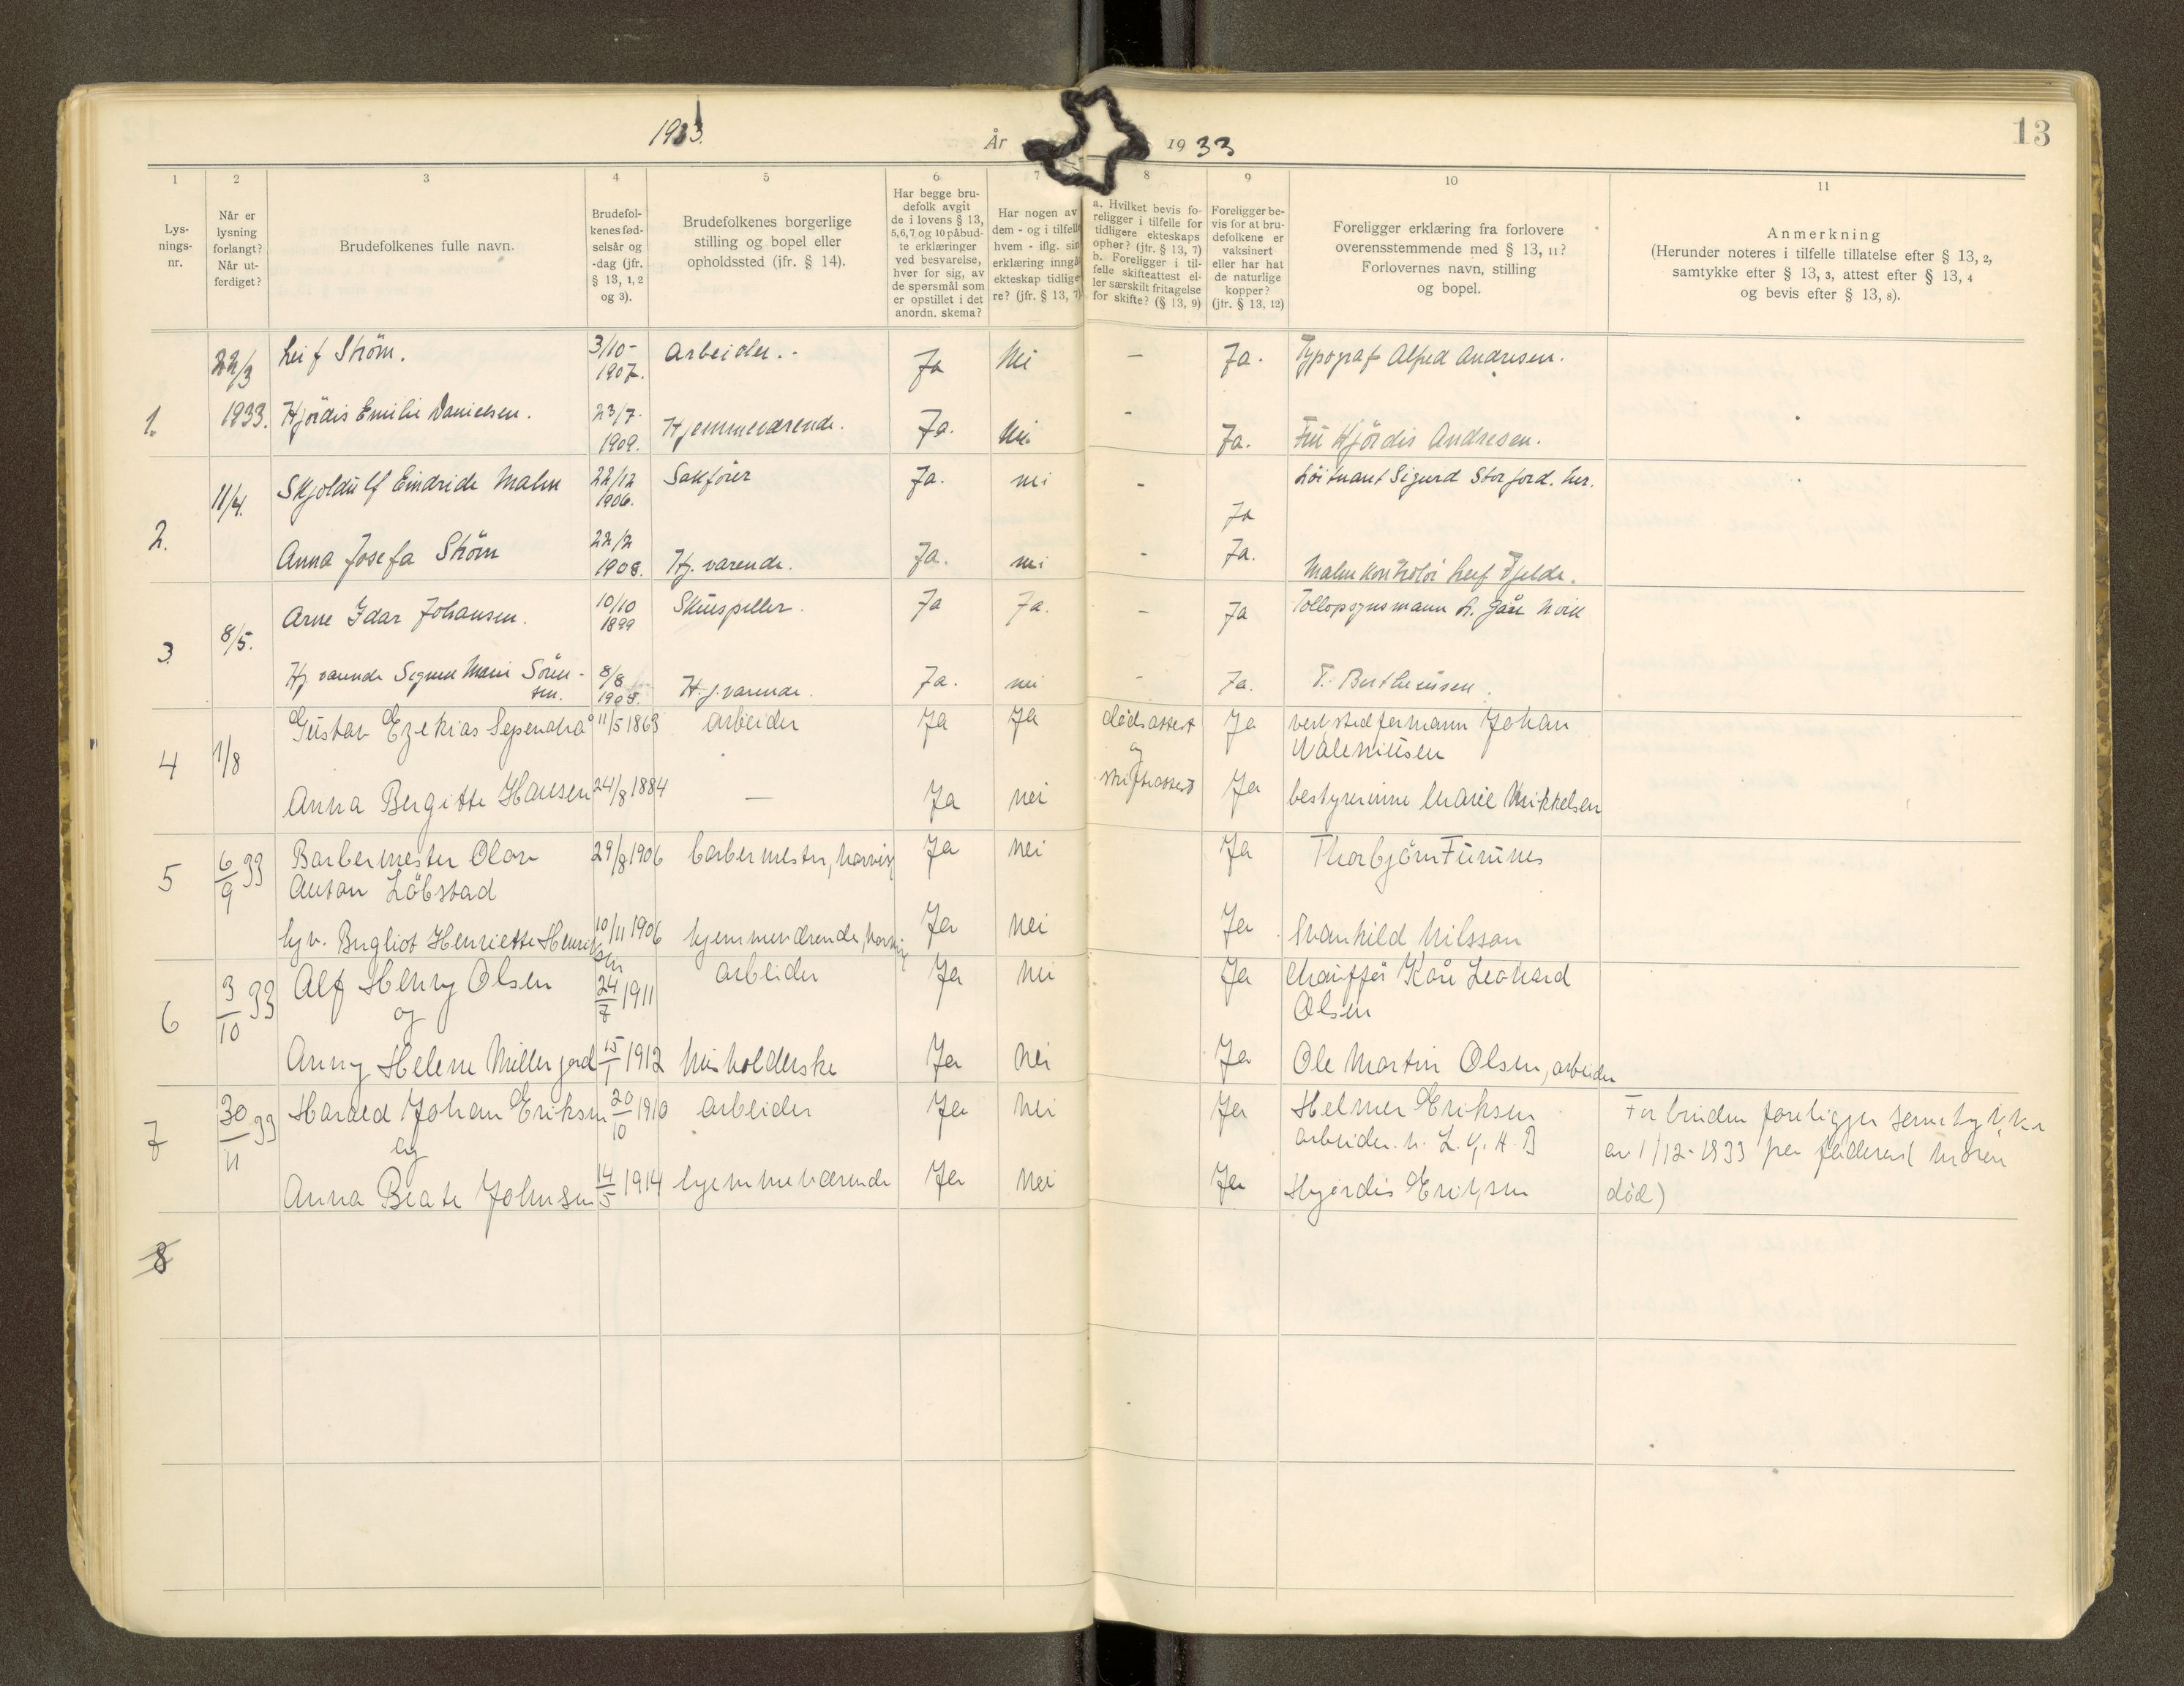 1933.
År 1933
13
1 2 3 4 5 6 7 8 9 10 11
Lys-
nings-
nr.
Når er
lysning
forlangt?
Når ut-
ferdiget?
Brudefolkenes fulle navn.
Brudefol-
kenes fød-
selsår og
-dag (jfr.
§ 13, 1, 2
og 3).
Brudefolkenes borgerlige
stilling og bopel eller
opholdssted (jfr. § 14).
Har begge bru-
defolk avgit
de i lovens § 13,
5, 6, 7 og 10 påbud-
te erklæringer
ved besvarelse,
hver for sig, av
de spørsmål som
er opstillet i det
anordn. skema?
Har nogen av
dem - og i tilfelle
hvem - iflg. sin
erklæring inngå
ekteskap tidlige
re? (jfr. § 13, 7)
a. Hvilket bevis fo-
religger i tilfelle for
tidligere ekteskaps
ophør? (jfr. § 13, 7)
b. Foreligger i til-
felle skifteattest el-
ler særskilt fritagelse
for skifte? (§ 13, 9)
Foreligger be-
vis for at bru-
defolkene er
vaksinert
eller har hat
de naturlige
kopper?
(jfr. § 13, 12)
Foreligger erklæring fra forlovere
overensstemmende med § 13, 11?
Forlovernes navn, stilling
og bopel.
Anmerkning
(Herunder noteres i tilfelle tillatelse efter § 13, 2,
samtykke efter § 13, 3, attest efter § 13, 4
og bevis efter § 13, 8).
1. 22/3 1933. Leif Ström. 3/10-1907. Arbeider.- Ja Nei - Ja. Typograf Alfred Andresen.
Hjördis Emilie Danielsen. 23/7-1909. Hjemmeværende. Ja. Nei - Ja. Frü Hjördis Andresen.
2. 11/4. Skjoldulf Eindride Malm 22/12 1906. Sakförer Ja. nei - Ja Löitnant Sigurd Storjord. her.
Anna Josefa Ström 22/2 1908. Hj. værende. Ja. nei - Ja. Malmkontrolör Leif Fjelde.
3. 8/5. Arne Idar Johansen. 10/10 1899 Skuespiller. Ja Ja. - Ja Tollopsynsmann
Hj værende Signe Marie Sören-
sen. 8/8 Hj. værende. Ja. nei - Ja. T. Bertheüsen.
4 1/8 Gustav Ezekias 11/5 1863 arbeider Ja Ja dødsattest Ja verkstedformann Johan
og
skifteattest
Anna Bergitte Hansen 24/8 1884 — Ja nei Ja bestyrerinne Marie Mikkelsen
5 6/9 33 Barbermester Olav
Anton Löbstad 29/8 1906 barbermester, Narvik Ja nei Ja Thorbjörn Furunes
hjv. Bergliot Henriette Henrik
sen 10/11 1906 hjemmeværende, Narvik Ja nei Ja Svanhild Nilsson
6 3/10 33 Alf Henry Olsen 24/7 1911 arbeider Ja nei Ja Chaufför Kåre Leonard
Olsen
og
Anny Helene Millerjord 15/1 1912 husholderske Ja nei Ja Ole Martin Olsen, arbeider
7 30/11 33 Harald Johan Eriksen 20/10 1910 arbeider Ja nei Ja Helmer Eriksen
arbeider
og
Anna Beate Johnsen 14/5 1914 hjemmeværende Ja nei Ja Hjördis Eriksen
For bruden foreligger samtykke
av 1/12-1933 fra faderen ( moren
död)
8